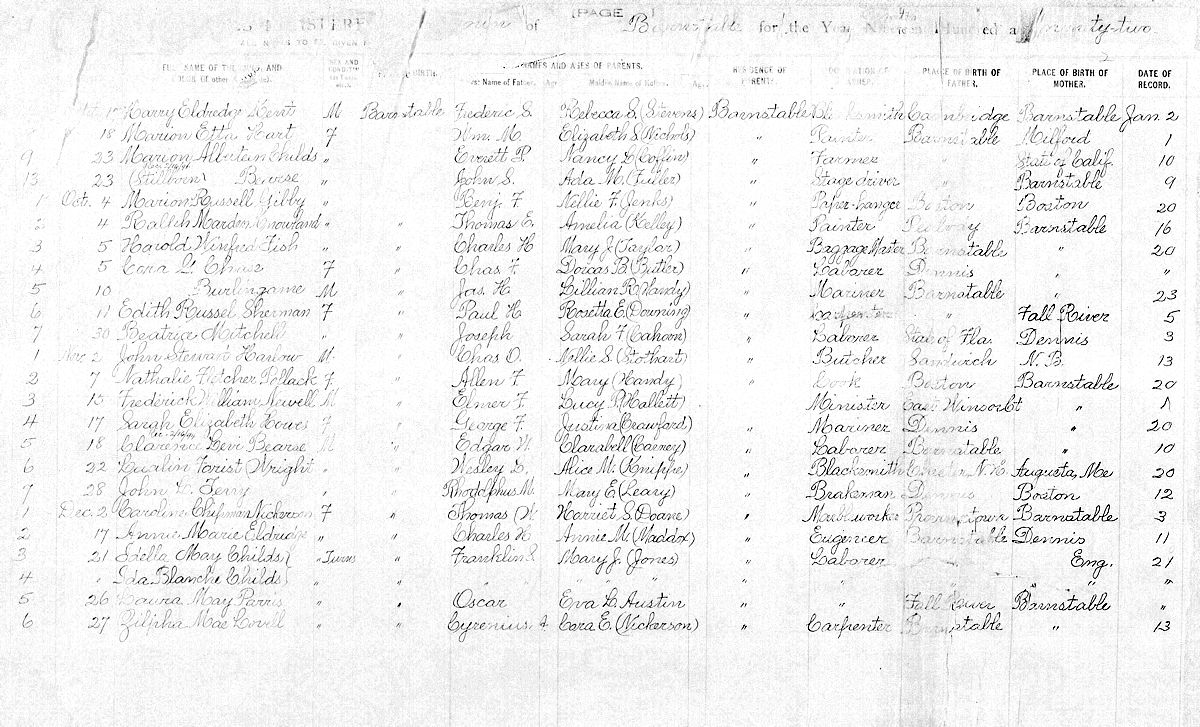 (PAGE )
of Barnstable for the Year Nineteen Hundred and twenty-two
FULL NAME OF THE CHILD, AND COLOR (if other than white). SEX AND CONDITION PLACE OF BIRTH. NAMES AND AGES OF PARENTS. First Name of Father. Age. Maiden Name of Mother. Age. RESIDENCE OF PARENTS. OCCUPATION OF FATHER. PLACE OF BIRTH OF FATHER. PLACE OF BIRTH OF MOTHER. DATE OF RECORD.
Harry Eldredge Kent M Barnstable Frederic S. Rebecca S. (Stevens) Barnstable Blacksmith Cambridge Barnstable Jan. 2
18 Marion Etta Hart F " Wm. M. Elizabeth S. Nichols " Painter Barnstable Milford 1
9 23 Marion Childs " " Everett P. Nancy L. (Coffin) " Farmer " State of Calif. 10
13 23 (Stillborn) Bearse " " John S. Ada M. (Fuller) " Stage driver " Barnstable 9
1 Oct. 4 Marion Russell Gibby " " Benj. F. Nellie F. (Jenks) " Paper-hanger Boston Boston 20
2 4 Ralph Marden " " Thomas E. Amelia (Kelley) " Painter Peabody Barnstable 16
3 5 Harold Winfred Fish " " Charles H. Mary J. (Taylor) " Baggage Master Barnstable " 20
4 5 Cora G. Chase F " Chas F. Dorcas B. (Butler) " Laborer Dennis " "
5 10 Burlingame M " Jas. H. Lillian R. (Handy) " Mariner Barnstable " 23
6 11 Edith Russel Sherman F " Paul H. Rosetta E. (Downing) " Carpenter " Fall River 5
7 30 Beatrice Mitchell " " Joseph Sarah F. (Cahoon) " Laborer State of Fla. Dennis 3
1 Nov. 2 John Stewart Harlow M. " Chas O. Nellie S. (Stothart) " Butcher Sandwich N. B. 13
2 7 Nathalie Fletcher Pollack F. " Allen F. Mary (Handy) " Cook Boston Barnstable 20
3 15 Frederick William Newell M " Elmer F. Lucy P. (Hallett) " Minister East Winsor Ct " 1
4 17 Sarah Elizabeth Howes F " George F. Justina (Crawford) " Mariner Dennis " 20
5 18 Clarence Levi Bearse M " Edgar W. Clarabell (Carney) " Laborer Barnstable " 10
6 22 Forist Wright " " Wesley L. Alice M. (Knippe) " Blacksmith N.H. Augusta, Me 20
7 28 John L. Terry " " Rhodolphus M. Mary E. (Leary) " Brakeman Dennis Boston 12
1 Dec. 2 Caroline Chipman Nickerson F " Thomas H. Harriet S. (Doane) " Marbleworker Provincetown Barnstable 3
2 17 Annie Marie Eldridge " " Charles H. Annie M. (Maddox) " Engineer Barnstable Dennis 11
3 21 Edella May Childs } " Twins " Franklin S. Mary J. (Jones) " Laborer " Eng. 21
4 " Ida Blanche Childs } " " " " " " " " "
5 26 Laura May Parris " " Oscar Eva L. Austin " " Fall River Barnstable "
6 27 Zilpha Mae Lovell " " Cyrenius. A Cora E. (Nickerson) " Carpenter Barnstable " 13